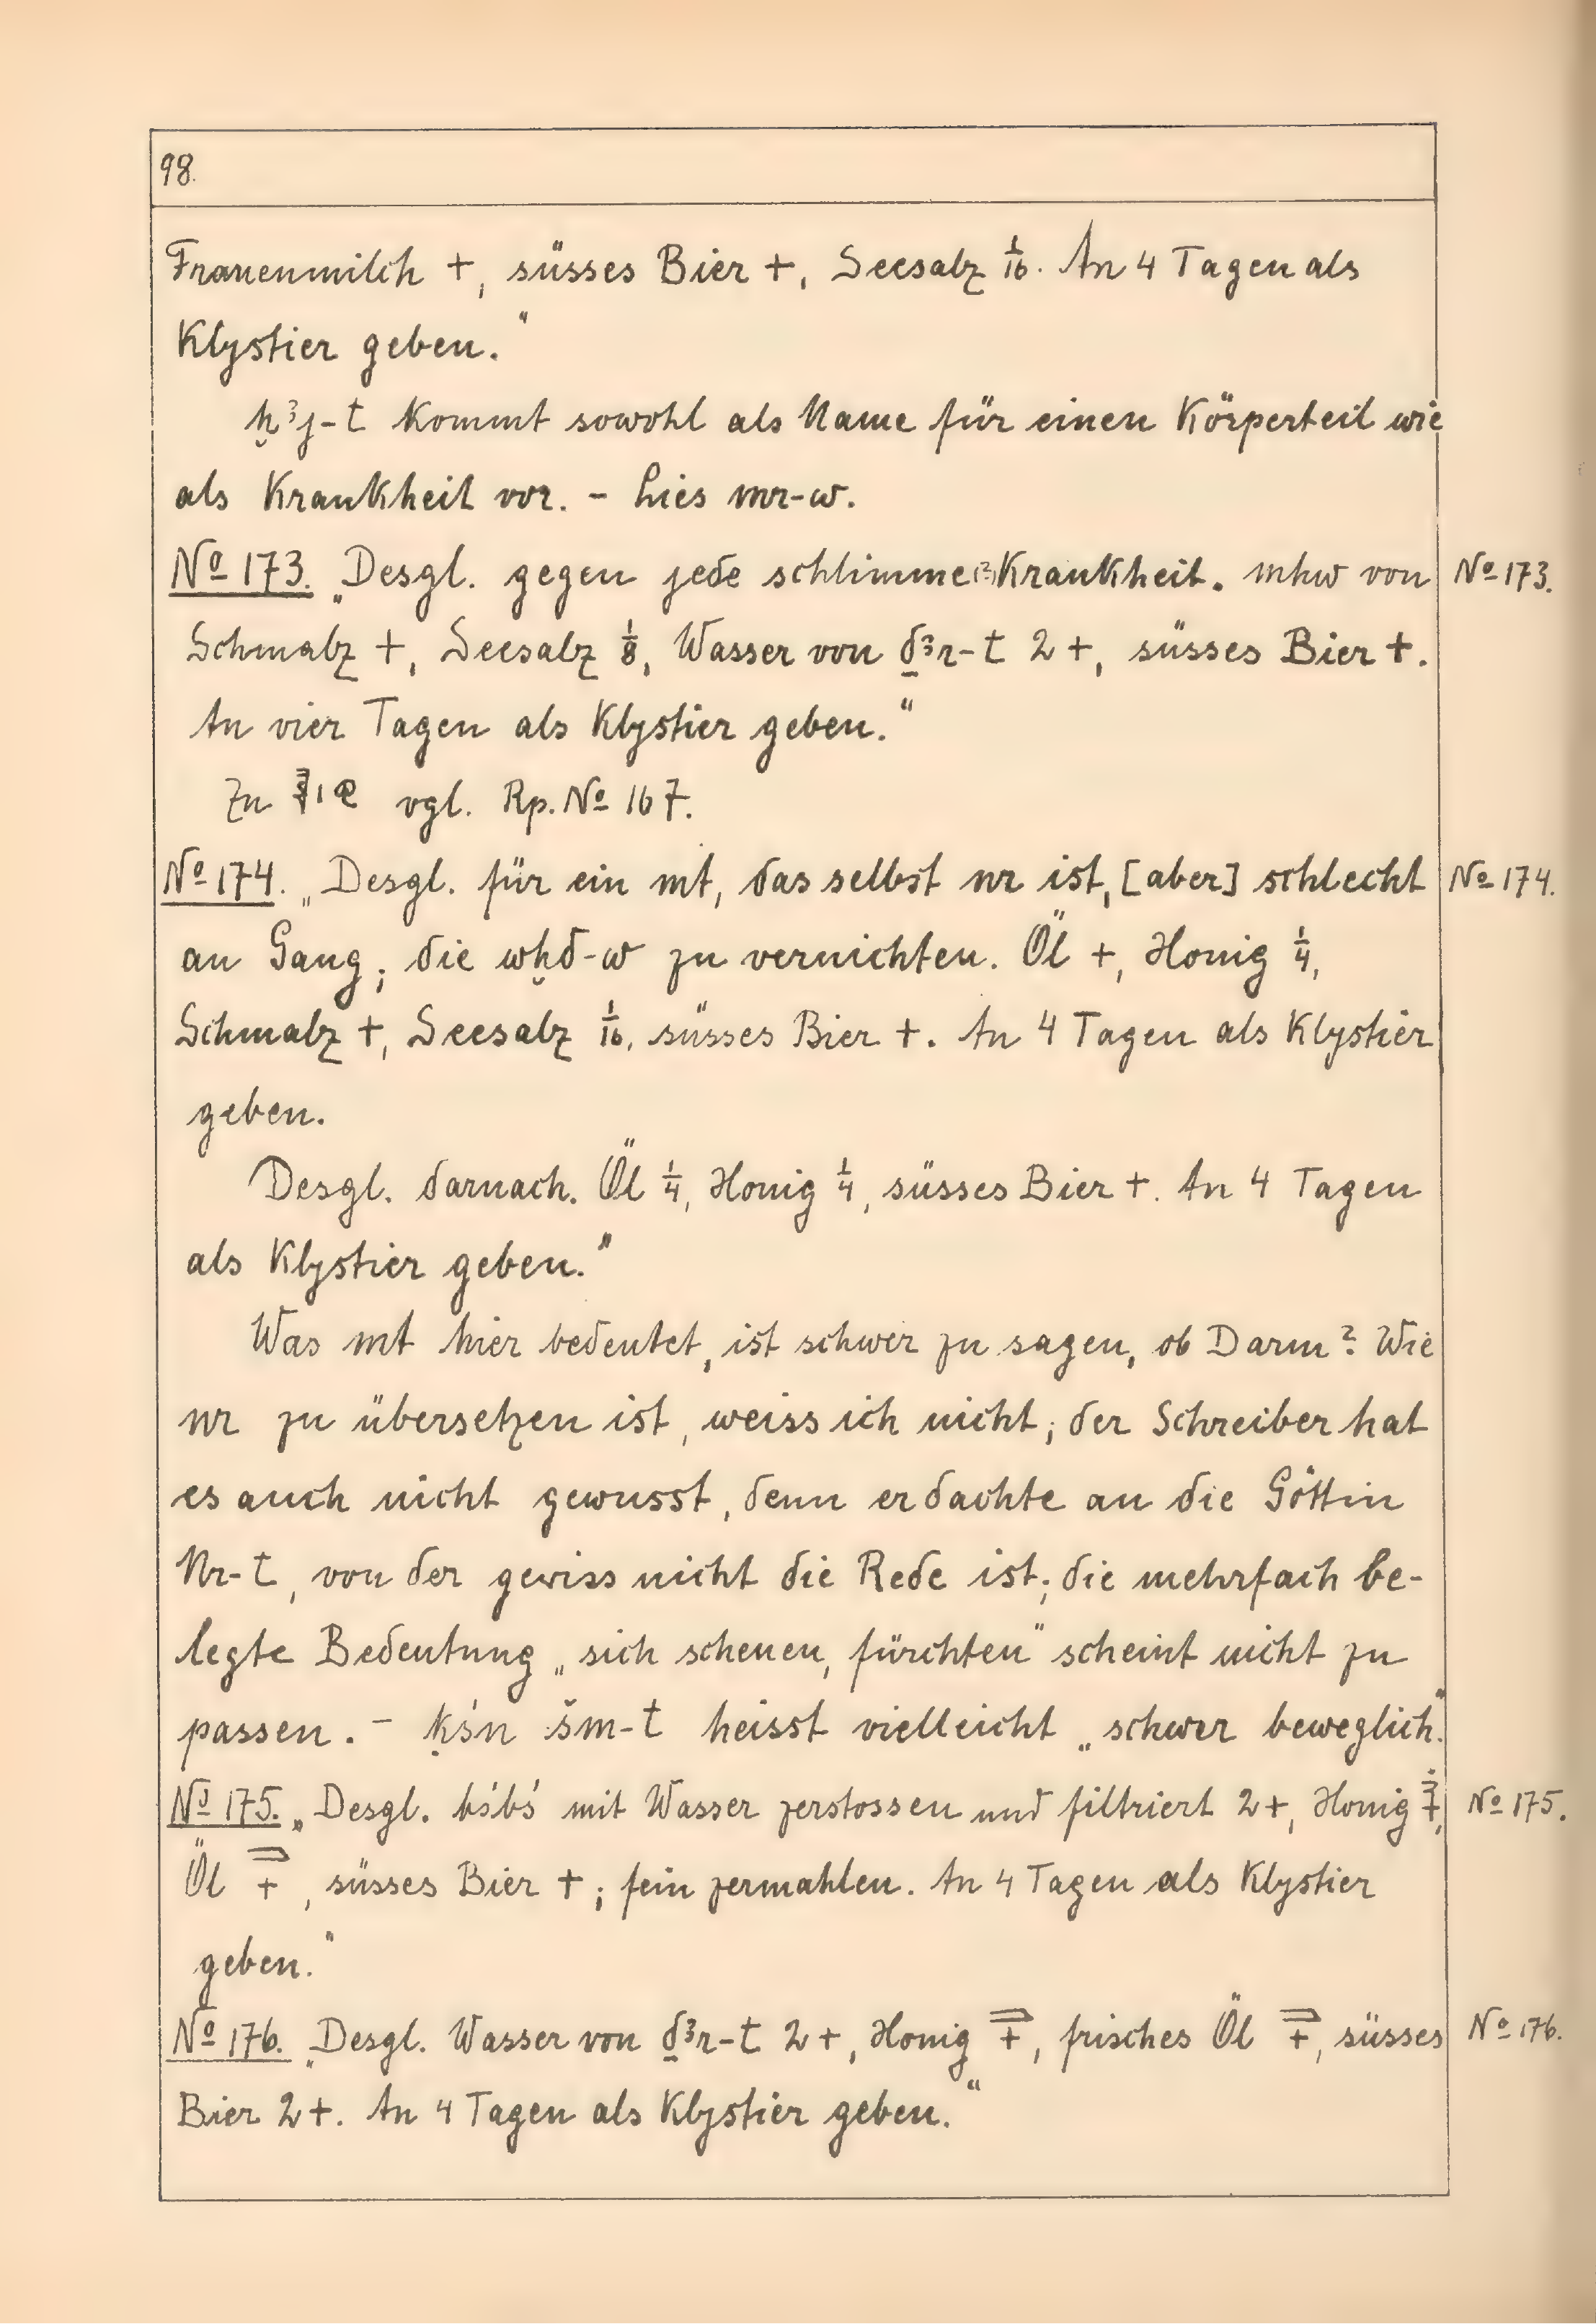 98.
Frauenmilch +, süsses Bier +, Seesalz 1/16. An 4 Tagen als
Klystier geben.“
ẖꜣj-t kommt sowohl als Name für einen Körperteil wie
als Krankheit vor. – Lies mr-w.
No 173. „Desgl. gegen jede schlimme(?) Krankheit. mhw von No 173.
Schmalz +, Seesalz 1/8, Wasser von ḏꜣr-t 2+, süsses Bier +.
An vier Tagen als Klystier geben.“
Zu vgl. Rp. No 167.
No 174. „Desgl. für ein mt, das selbst nr ist, [aber] schlecht No 174.
an Gang; die wḫd-w zu vernichten. Öl +, Honig 1/4,
Schmalz +, Seesalz 1/16, süsses Bier +. An 4 Tagen als Klystier
geben.
Desgl. darnach. Öl 1/4, Honig 1/4, süsses Bier +. An 4 Tagen
als Klystier geben.“
Was mt hier bedeutet, ist schwer zu sagen, ob Darm? Wie
nr zu übersetzen ist, weiss ich nicht; der Schreiber hat
es auch nicht gewusst, denn er dachte an die Göttin
Nr-t, von der gewiss nicht die Rede ist; die mehrfach be-
legte Bedeutung „sich scheuen, fürchten“ scheint nicht zu
passen. – ḳśn šm-t heisst vielleicht „schwer beweglich.“
No 175. „Desgl. bśbś mit Wasser zerstossen und filtriert 2+, Honig +, No 175.
Öl +, süsses Bier +; fein zermahlen. An 4 Tagen als Klystier
geben.“
No 176. „Desgl. Wasser von ḏꜣr-t 2+, Honig +, frisches Öl +, süsses No 176.
Bier 2+. An 4 Tagen als Klystier geben.“